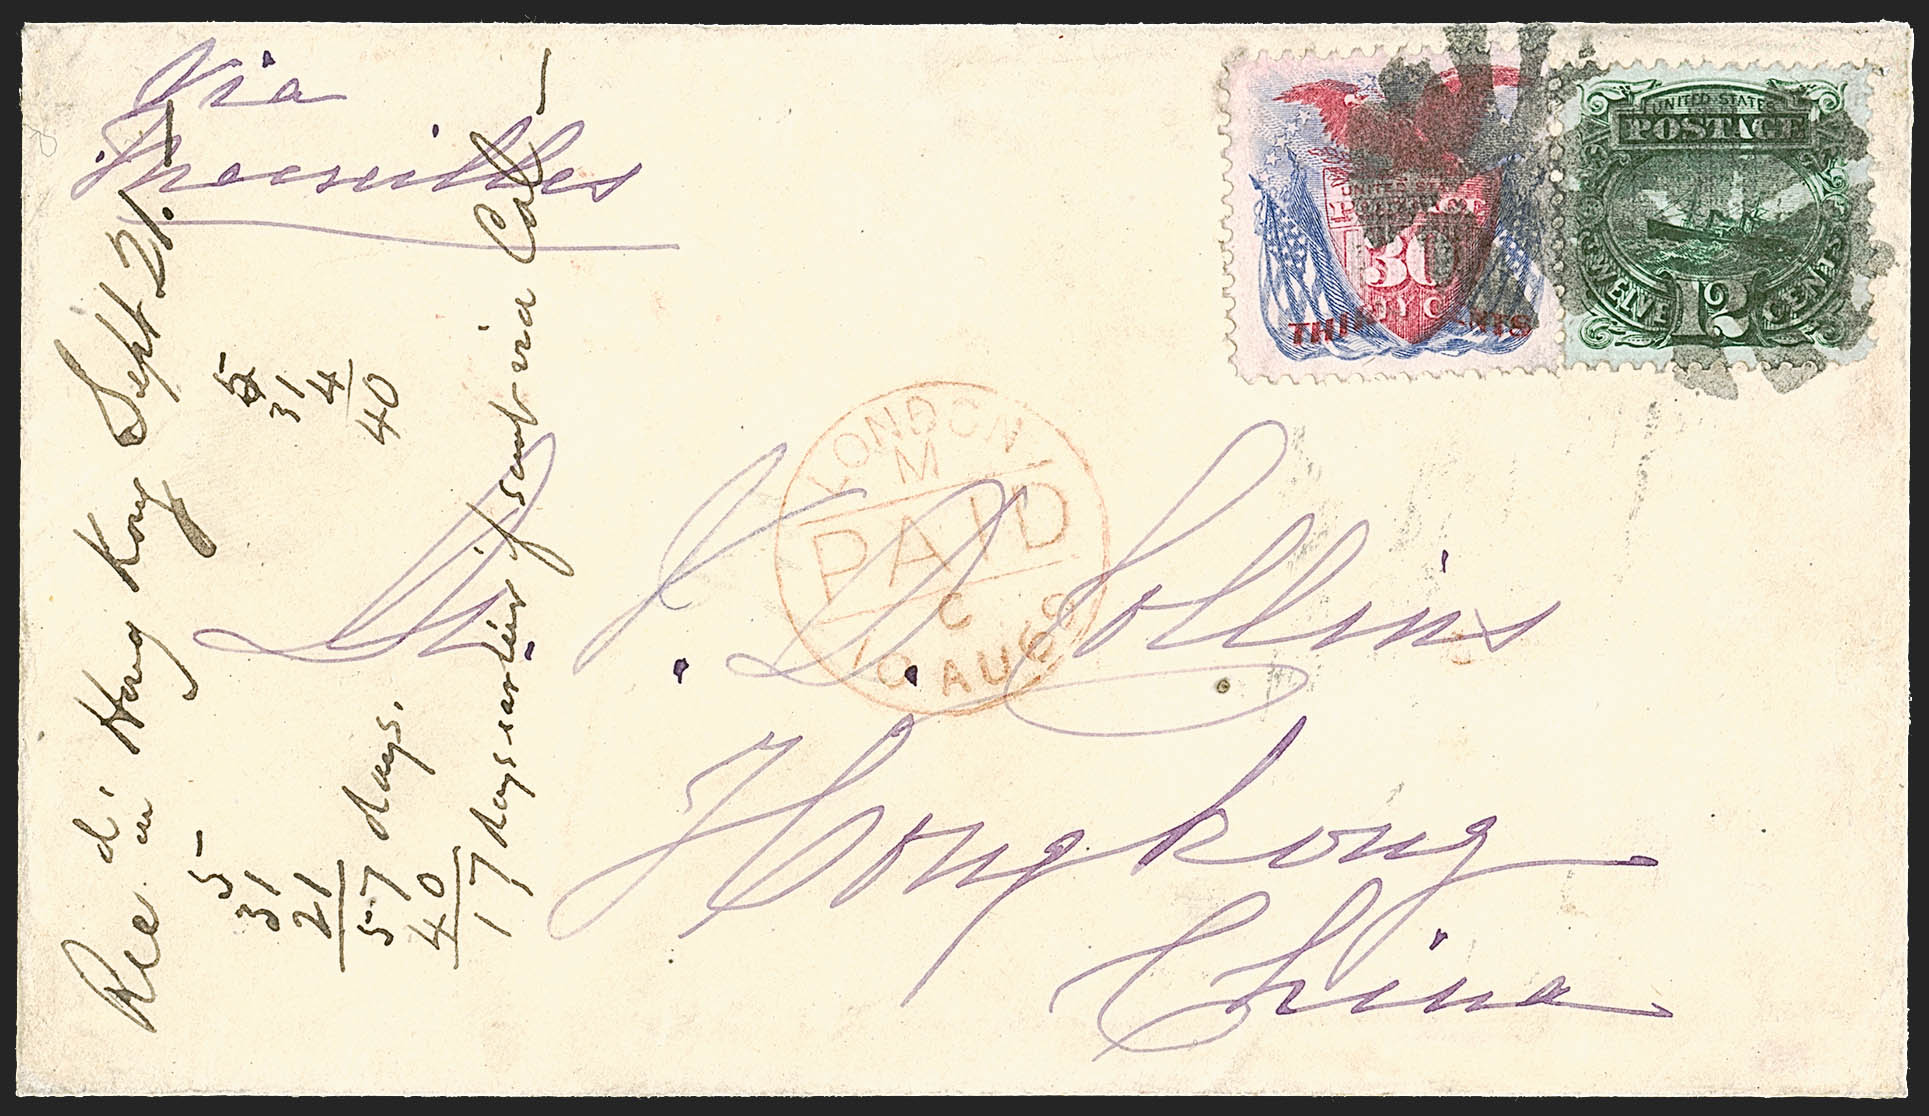 Via
Marseilles
UNITED STATES
POSTAGE
30
THIRTY CENTS
UNITED STATES
POSTAGE
TWELVE 12 CENTS
LONDON
M
PAID
C
10 AUG 69
Dr. J. D. Collins
Hongkong
China
Rec'd
in Hong Kong Sept 21.
5
31
21
57 days.
40
17 days earlier if sent via Cal
5
31
4
40